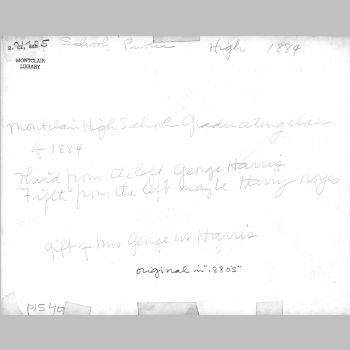 Schools, Public High 1884
MONTCLAIR
LIBRARY
Montclair High School Graduating class
of 1884
Third from the left George Harris
Fifth from the left maybe Harry Noyes
gift of Mrs George W. Harris
original in "1880's"
p1540